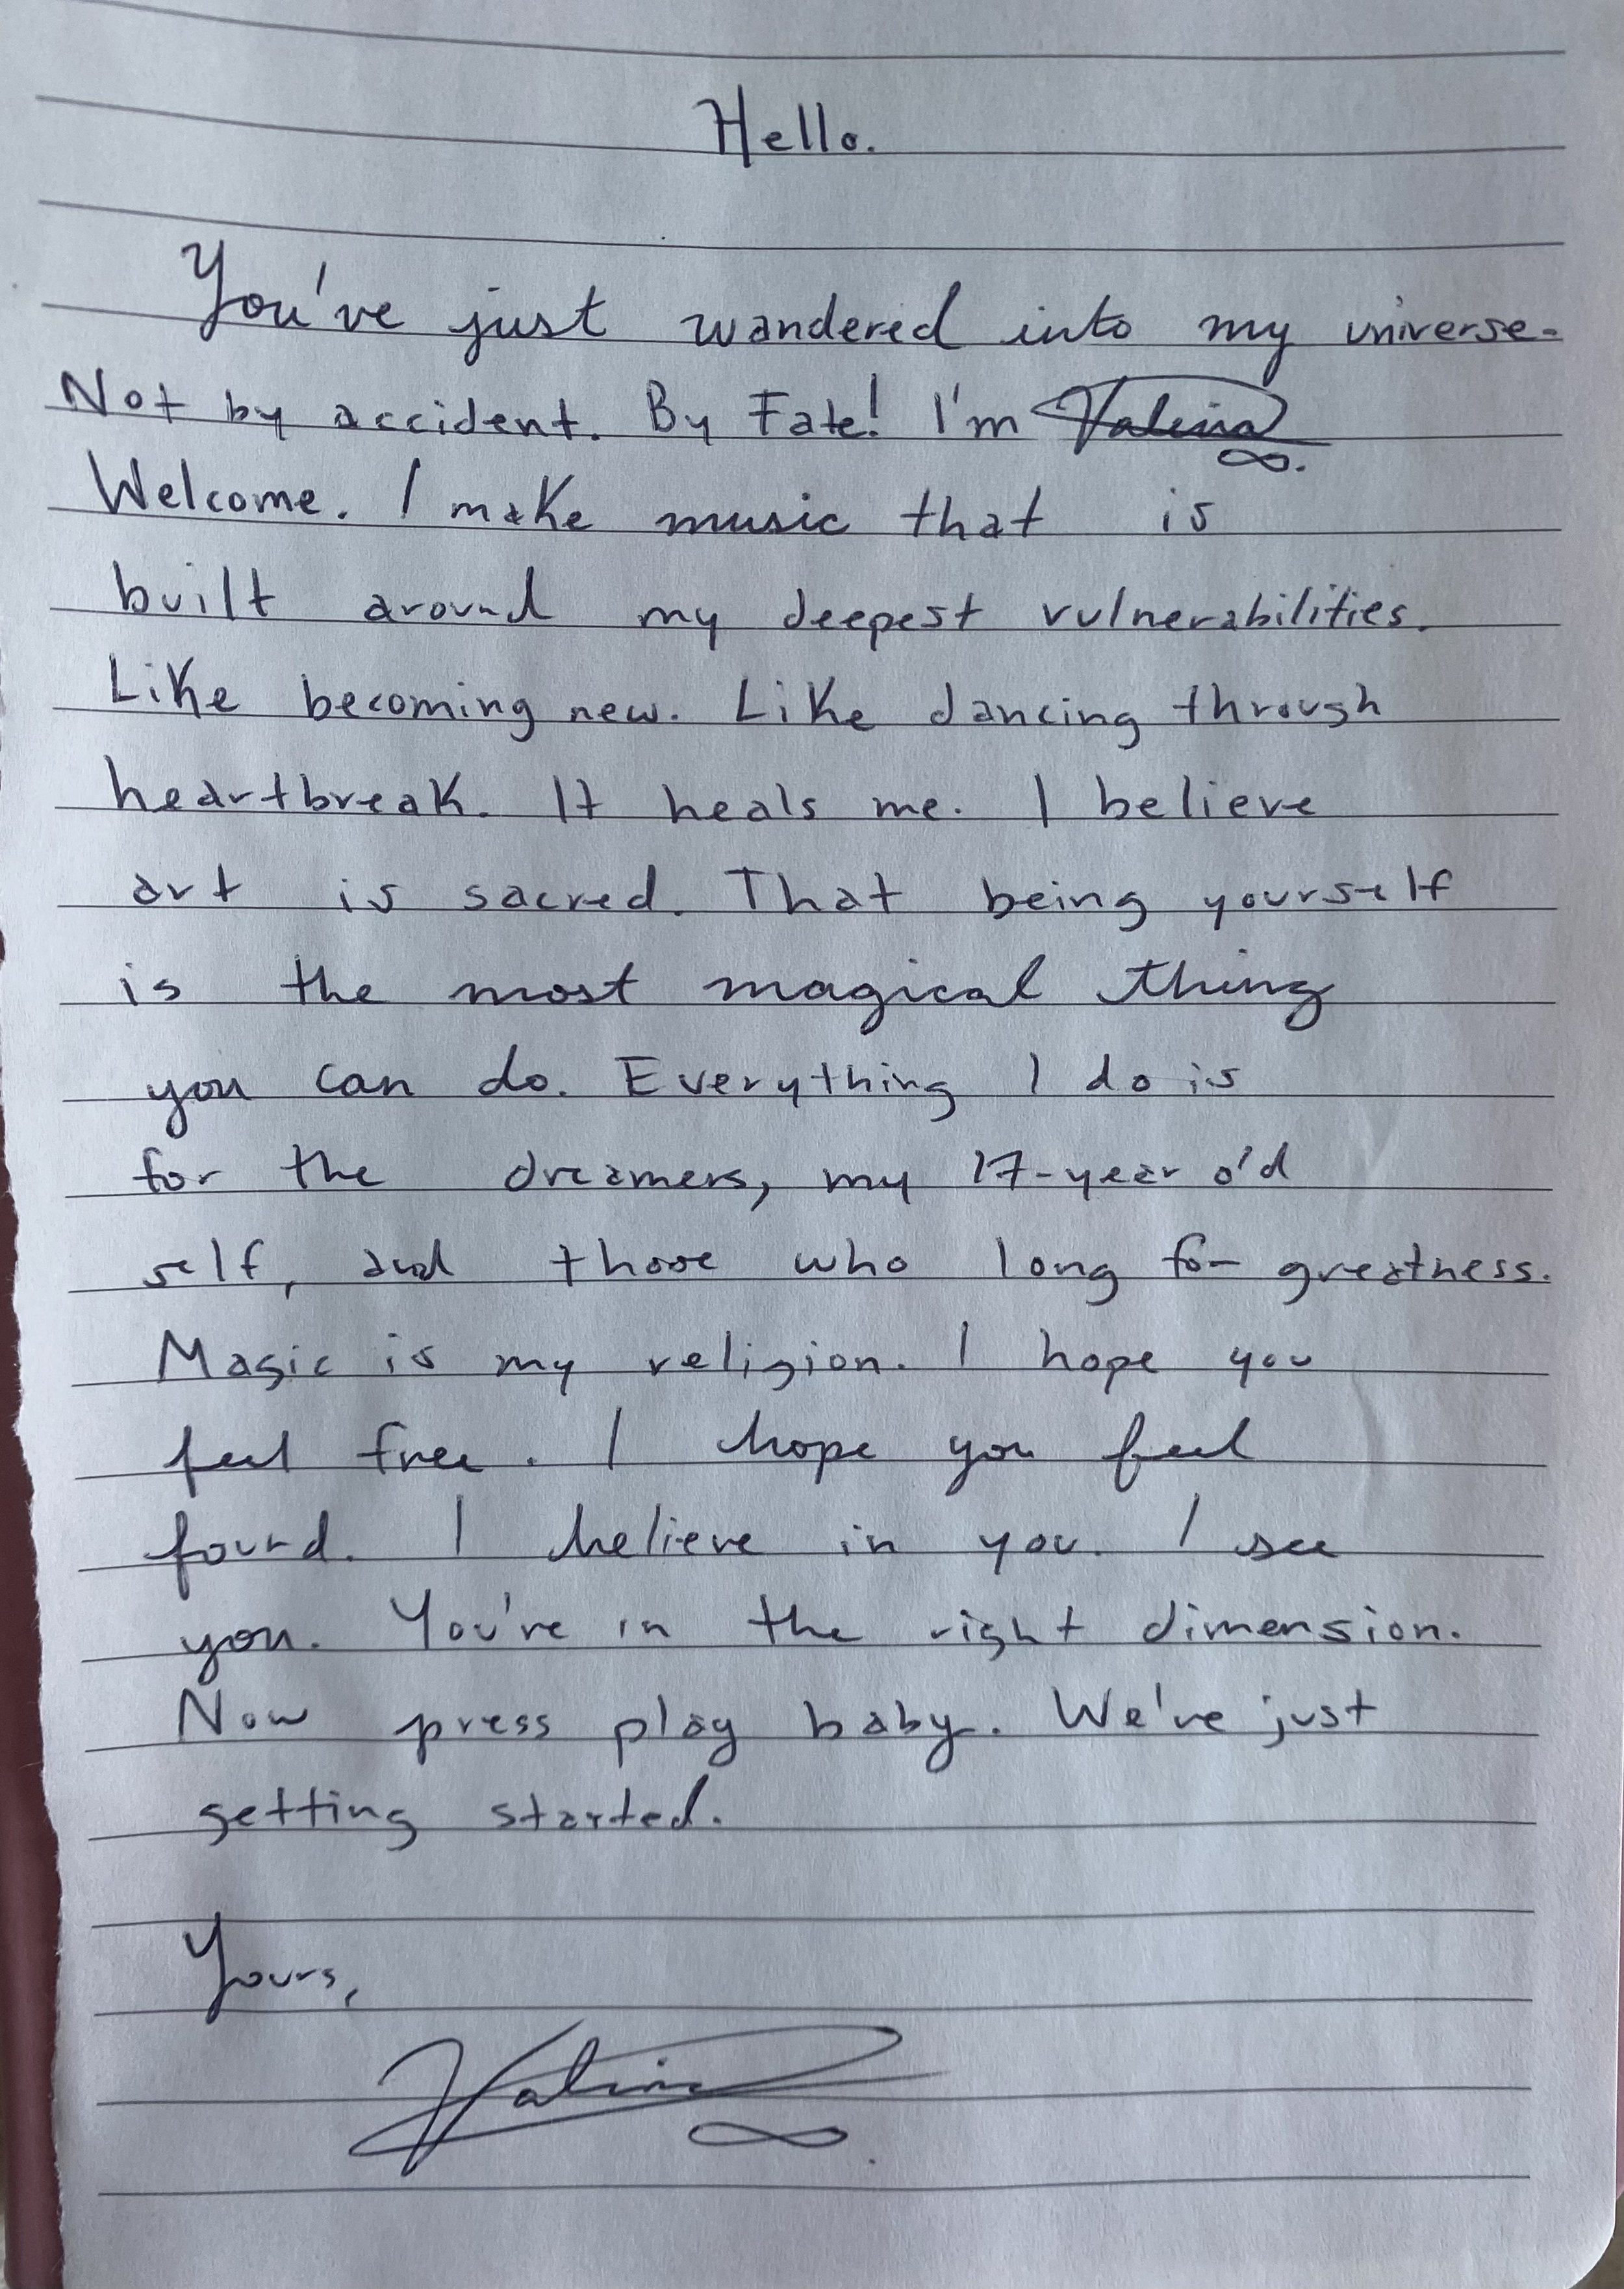 Hello.
You've just wandered into my universe.
Not by accident. By Fate! I'm
Welcome. I make music that is
built around my deepest vulnerabilities.
Like becoming new. Like dancing through
heartbreak. It heals me. I believe
art is sacred. That being yourself
is the most magical thing
you can do. Everything I do is
for the dreamers, my 17-year old
self, and those who long for greatness.
Magic is my religion. I hope you
feel free. I hope you feel
found. I believe in you. I see
you. You're in the right dimension.
Now press play baby. We've just
getting started.
Yours,